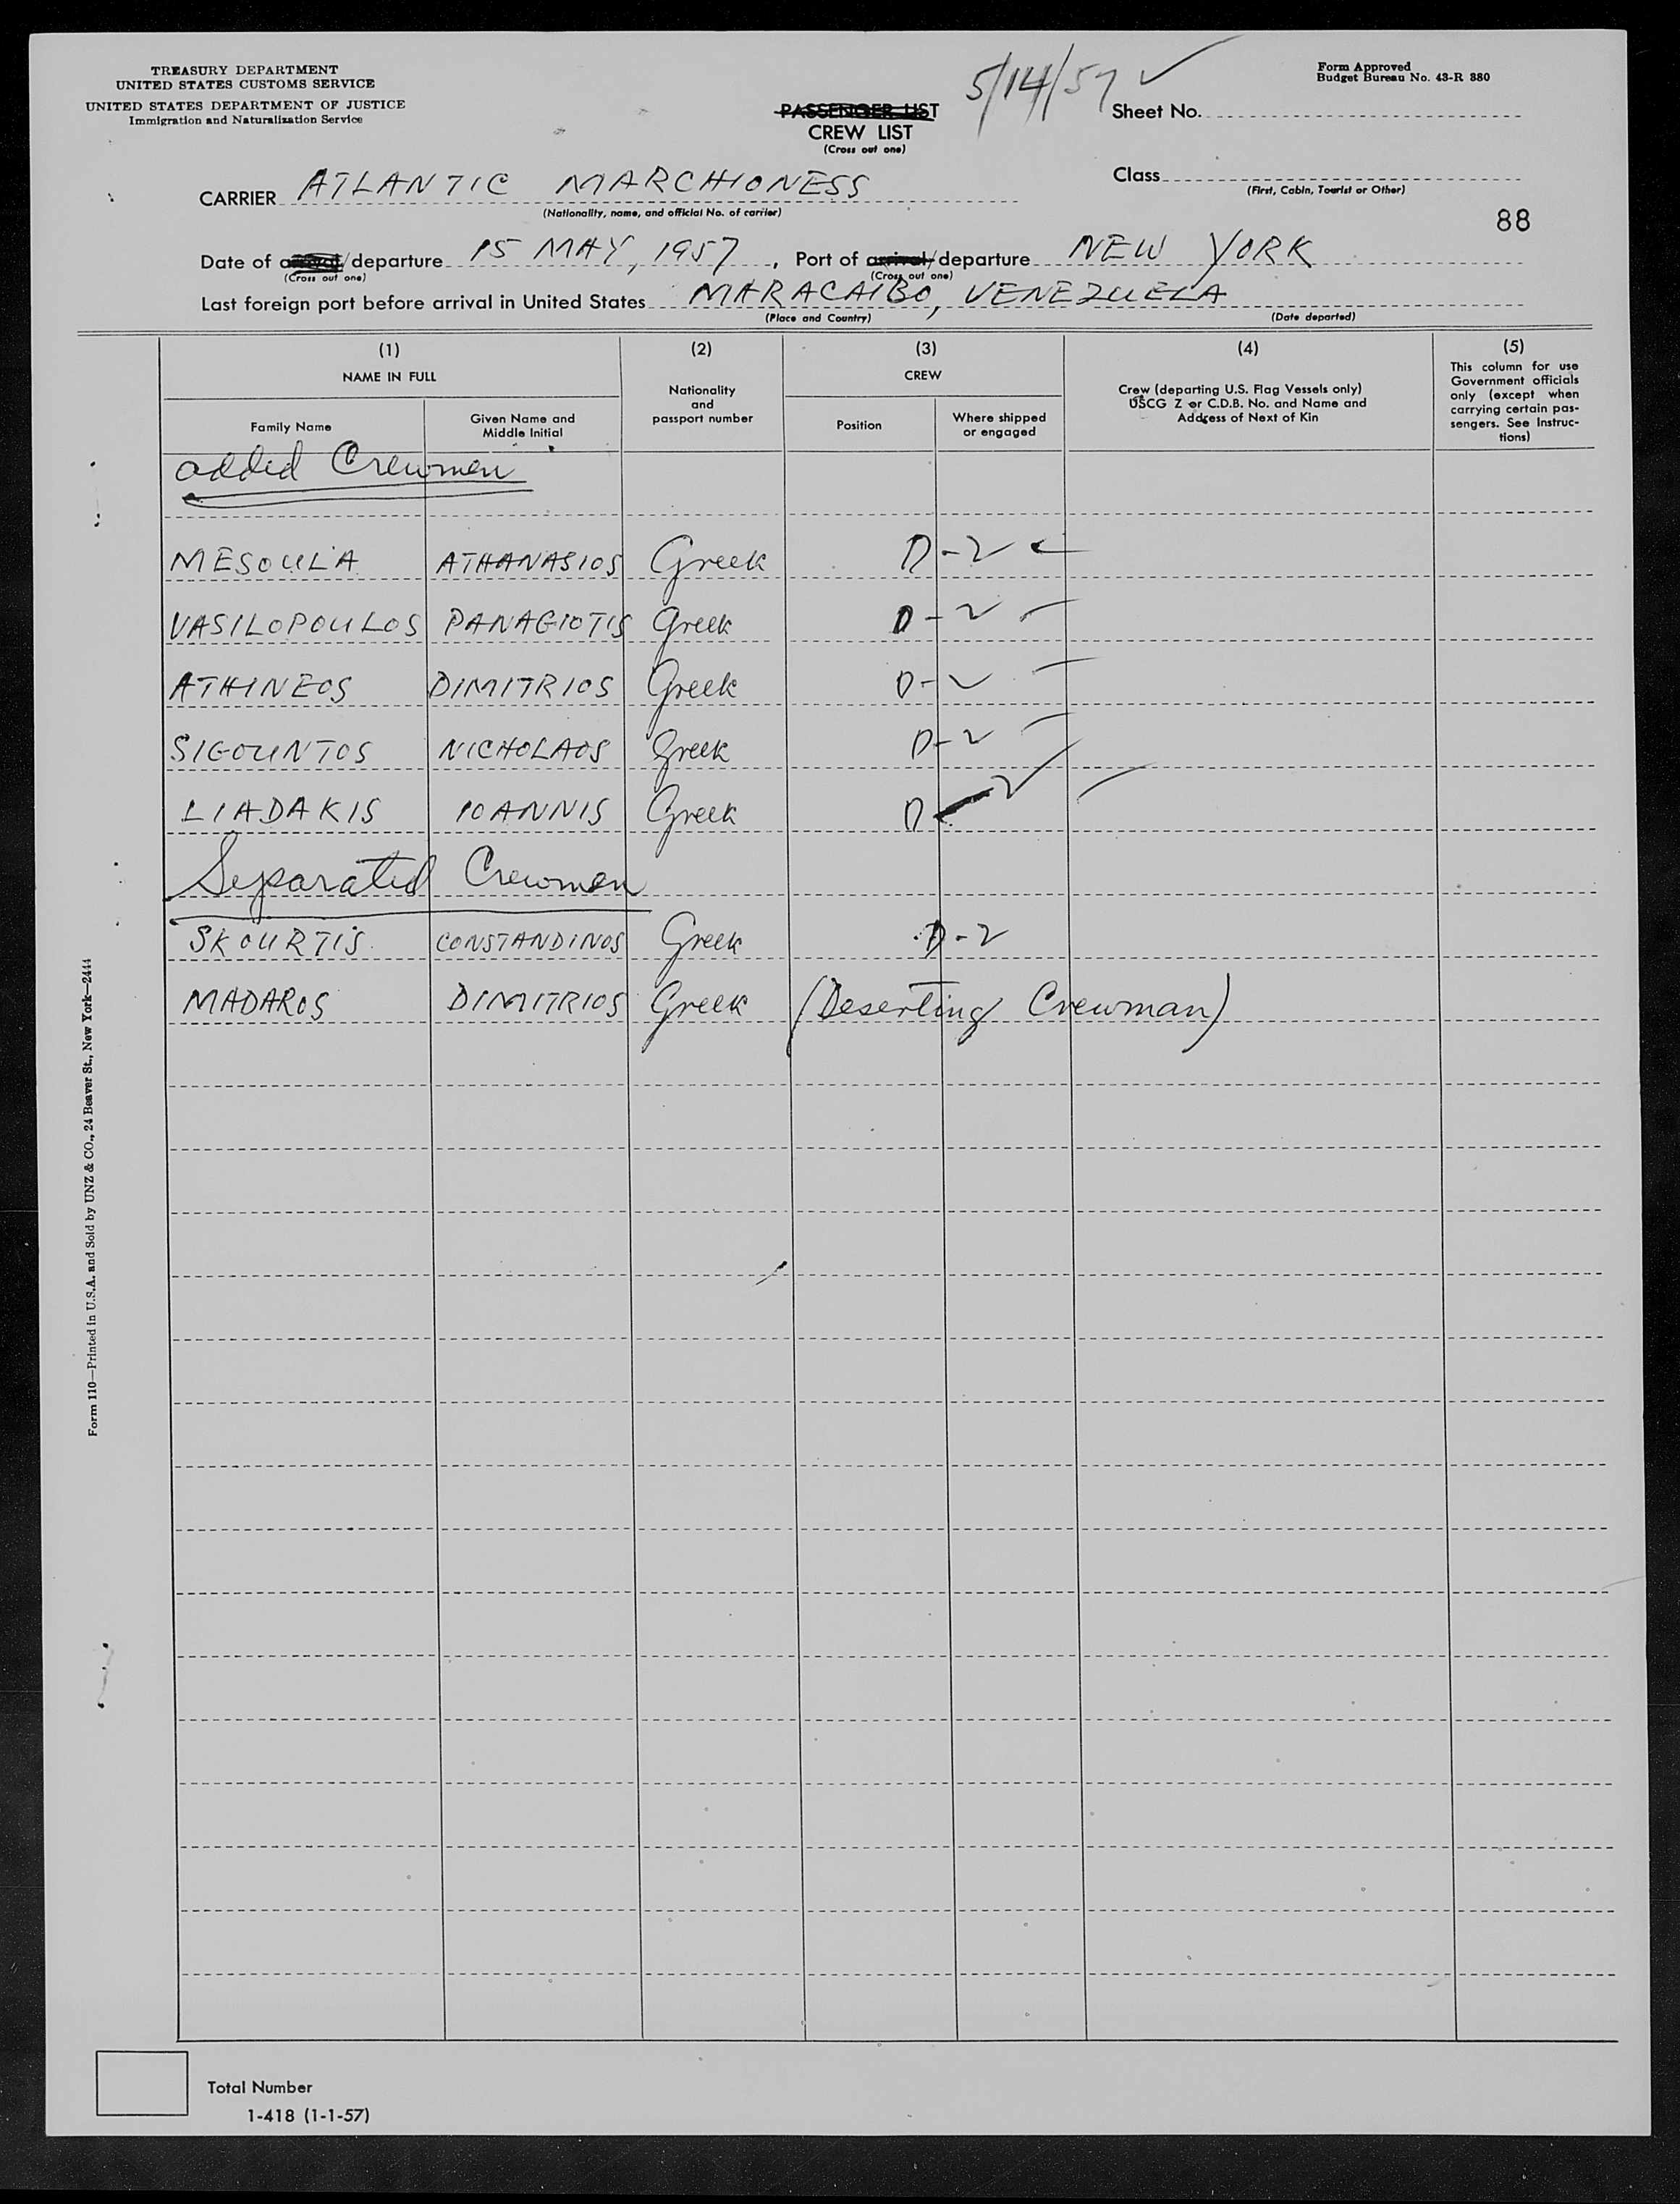 TREASURY DEPARTMENT
UNITED STATES CUSTOMS SERVICE
UNITED STATES DEPARTMENT OF JUSTICE
Immigration and Naturalization Service
5/14/57 ✓
Form Approved
Budget Bureau No. 43-R 380
PASSENGER LIST
CREW LIST
(Cross out one)
Sheet No.
CARRIER ATLANTIC MARCHIONESS
(Nationality, name, and official No. of carrier)
Class
(First, Cabin, Tourist or Other)
88
Date of arrival/departure 15 MAY, 1957, Port of arrival/departure NEW YORK
(Cross out one) (Cross out one)
Last foreign port before arrival in United States MARACAIBO, VENEZUELA
(Place and Country) (Date departed)
(1) (2) (3) (4) (5)
NAME IN FULL
Family Name
Given Name and
Middle Initial
Nationality
and
passport number
CREW
Position
Where shipped
or engaged
Crew (departing U.S. Flag Vessels only)
USCG Z or C.D.B. No. and Name and
Address of Next of Kin
This column for use
Government officials
only (except when
carrying certain pas-
sengers. See Instruc-
tions)
added Crewmen
MESOULA ATHANASIOS Greek D-2
VASILOPOULOS PANAGIOTIS Greek D-2
ATHINEOS DIMITRIOS Greek D-2
SIGOUNTOS NICHOLAOS Greek D-2
LIADAKIS IOANNIS Greek D-2
Separated Crewmen
SKOURTIS CONSTANDINOS Greek D-2
MADAROS DIMITRIOS Greek (Deserting Crewman)
Form 110—Printed in U.S.A. and Sold by UNZ & CO., 24 Beaver St., New York—2444
Total Number
1-418 (1-1-57)